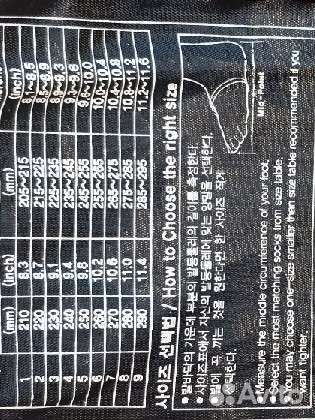 (mm) (inch) (mm) (inch)
1 210 8.3 205~215 8.1~8.5
2 220 8.7 215~225 8.5~8.9
3 230 9.1 225~235 8.9~9.3
4 240 9.4 235~245 9.3~9.6
5 250 9.8 245~255 9.6~10.0
6 260 10.2 255~265 10.0~10.4
7 270 10.6 265~275 10.4~10.8
8 280 11.0 275~285 10.8~11.2
9 290 11.4 285~295 11.2~11.6
사이즈 선택법 / How to Choose the right size
• 발바닥의 가운데 부분의 발둘레의 길이를 측정한다.
• 사이즈표에서 자신의 발둘레에 맞는 양말을 선택한다.
발이 꼭 끼는 것을 원한다면 한 사이즈 작게
선택한다.
Mid-Point
Measure the middle circumference of your foot.
Select the most matching socks from size table.
You may choose one-size smaller than size table recommended if you
want tighter.
Avito